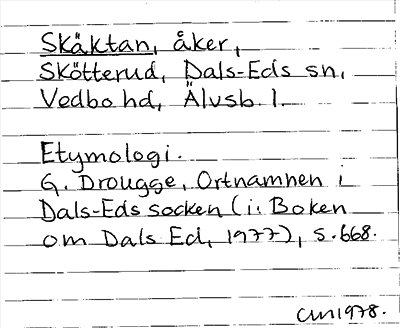 Skäktan, åker,
Skötterud, Dals-Eds sn,
Vedbo hd, Älvsb. l.
Etymologi.
G. Drougge, Ortnamnen i
Dals-Eds socken (i: Boken
om Dals Ed, 1977), s. 668.
CM 1978.